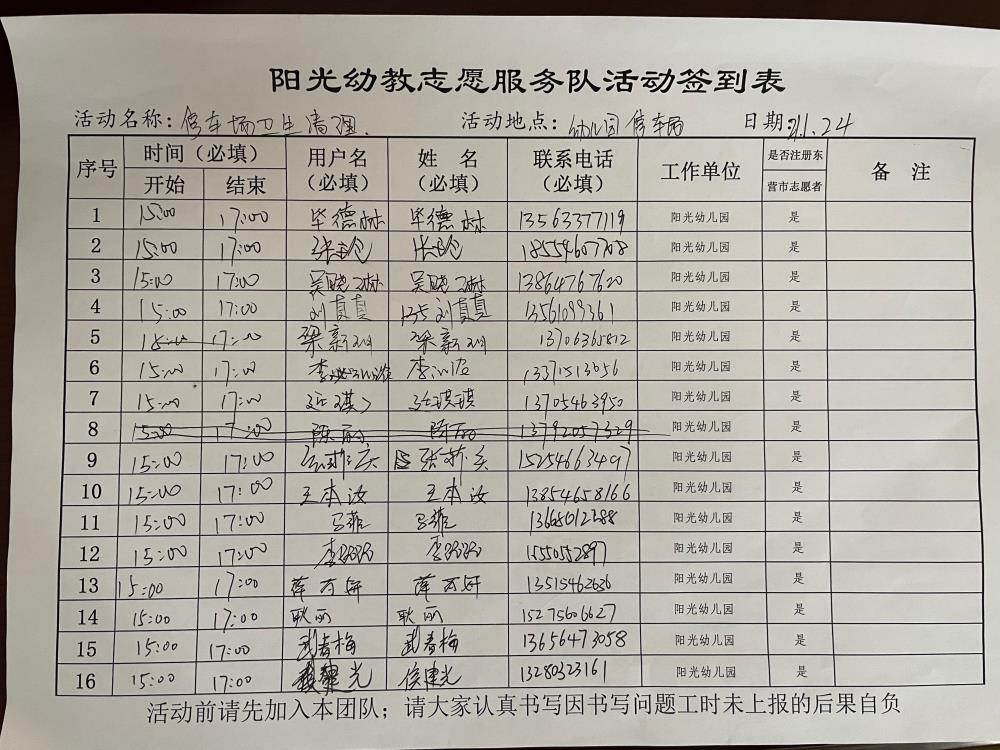 阳光幼教志愿服务队活动签到表
活动名称: 停车场卫生清理. 活动地点: 幼儿园停车场 日期: 21.1.24
序号 时间（必填） 用户名（必填） 姓 名（必填） 联系电话（必填） 工作单位 是否注册东营市志愿者 备 注
开始 结束
1 15:00 17:00 毕德林 毕德林 13563377119 阳光幼儿园 是
2 15:00 17:00 18554607708 阳光幼儿园 是
3 15:00 17:00 吴晓琳 吴晓琳 13864767620 阳光幼儿园 是
4 15:00 17:00 刘真真 135 刘真真 13561099361 阳光幼儿园 是
5 15:00 17:00 梁新训 梁新训 13706365812 阳光幼儿园 是
6 15:00 17:00 李 李 13371513656 阳光幼儿园 是
7 15:00 17:00 琪琪 13705463950 阳光幼儿园 是
8 15:00 17:00 陈丽 陈丽 13792057329 阳光幼儿园 是
9 15:00 17:00 张 15254663497 阳光幼儿园 是
10 15:00 17:00 王本汝 王本汝 13854658166 阳光幼儿园 是
11 15:00 17:00 马菲 马菲 阳光幼儿园 是
12 15:00 17:00 李 李 15550552897 阳光幼儿园 是
13 15:00 17:00 薛万妍 薛万妍 13515462636 阳光幼儿园 是
14 15:00 17:00 耿丽 耿丽 15275606627 阳光幼儿园 是
15 15:00 17:00 武春梅 武春梅 13656473058 阳光幼儿园 是
16 15:00 17:00 建光 侯建光 13280323161 阳光幼儿园 是
活动前请先加入本团队；请大家认真书写因书写问题工时未上报的后果自负